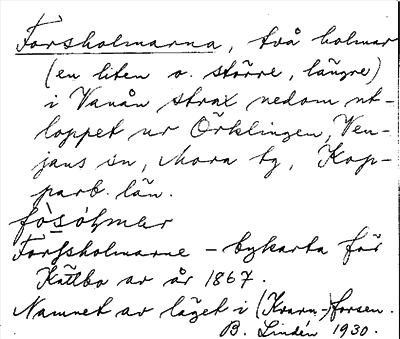 Forsholmarna, två holmar
(en liten o. större, längre)
i Vanån strax nedom ut-
loppet ur Örklingen, Ven-
jans sn, Mora tg, Kop-
parb. län.
fòsóḷmar
Forssholmarne – bykarta för
Kättbo av år 1867.
Namnet av läget i (Kvarn-)forsen.
B. Lindén 1930.